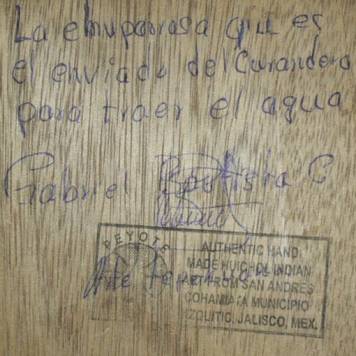 La chuparrosa que es
el enviado del Curandero
para traer el agua
Gabriel Bautista C
PEYOTE
AUTHENTIC HAND
MADE HUICHOL INDIAN
ART FROM SAN ANDRES
COHAMIATA MUNICIPIO
ZQLITIC, JALISCO, MEX.
Arte